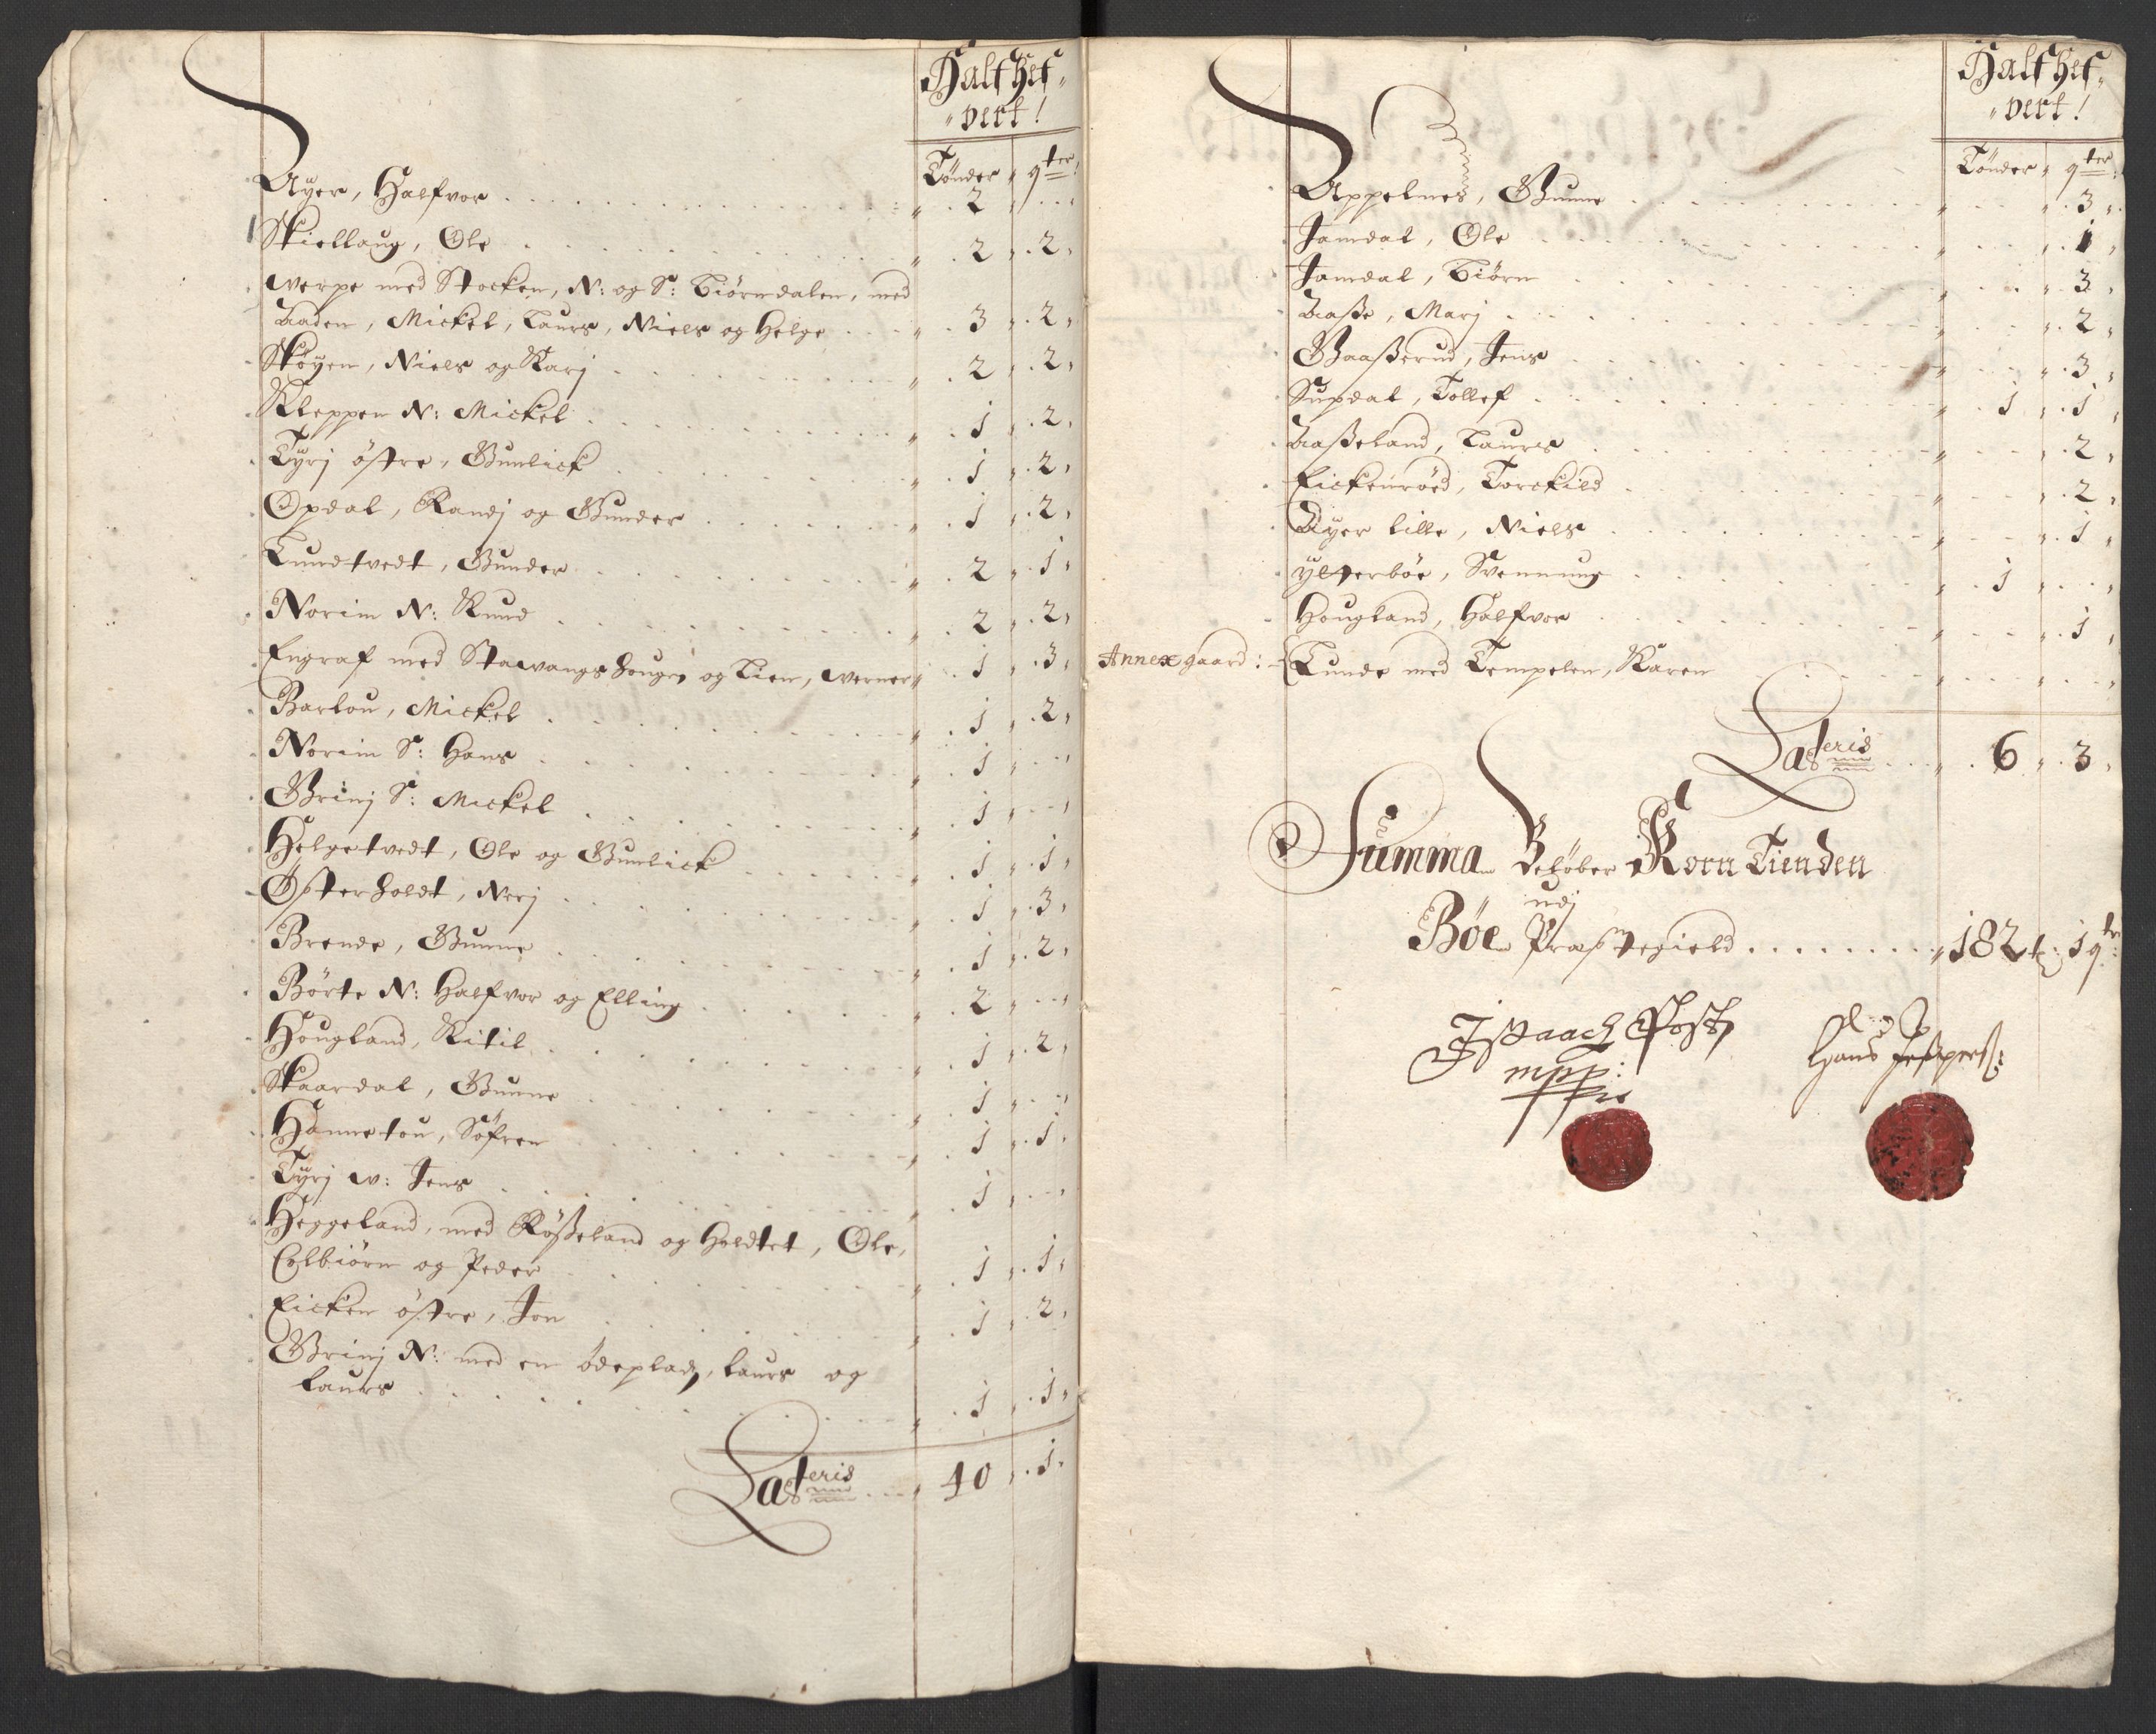 Half hef-
-vert!
Tönder, qter
Uÿer, Halfvor . . . 2 , . . .
Skiellaug, Ole . . . 2 , . 2 ,
Werpe med Stocken, N: og S: Biörndalen, med
Haden, Mickel, Laurs, Niels og Helge . . . 3 , . 2 ,
Sköyen, Niels og Karj . . . 2 , . 2 ,
Kleppen N: Mickel . . . 1 , . 2 ,
Tyrj östre, Gunlick . . . 1 , . 2 ,
Opdal, Randj og Gunder . . . 1 , . 2 ,
Lundtvedt, Gunder . . . 2 , . 1 ,
Norim N: Knud . . . 2 , . 2 ,
Engraf med Stawangs houge og Lien, Werner . 1 , . 3 ,
Barlou, Mickel . . . 1 , . 2 ,
Norim S: Hans . . . 1 , . . .
Grinj S: Mickel . . . 1 , . . .
Helgetvedt, Ole og Gunlick . . . 1 , . 1 ,
Österholdt, Nerj . . . 1 , . 3 ,
Brende, Gunne . . . 1 , . 2 ,
Börte N: Halfvor og Elling . . . 2 , . . .
Hougland, Kitil . . . 1 , . 2 ,
Skaardal, Gunne . . . 1 , . . .
Hannetou, Söfren . . . 1 , . 1 ,
Tyrj W: Jens . . . 1 , . . .
Heggeland, med Rößeland og Holdtet, Ole,
Colbiörn og Peder . . . 1 , . 1 ,
Eicken östre, Jon . . . 1 , . 2 ,
Grinj N: med en ödepladz, Laurs og
Laurs . . . 1 , . 1 ,
Lateris . . . 40 , . 1 ,
Half hef-
-vert!
Tönder, qter
Appelnes, Gunne . . . 3 ,
Jamdal, Ole . . . 1 ,
Jamdal, Biörn . . . 3 ,
Haße, Marj . . . 2 ,
Gaaßerud, Jens . . . 3 ,
Supdal, Tollef . . . 1 , . 1 ,
Haßeland, Laurs . . . 2 ,
Eickenröed, Torckild . . . 2 ,
Uÿer lille, Niels . . . 1 ,
ÿlterböe, Svennung . . . 1 , . . .
Hougland, Halfvor . . . 1 ,
Annex gaard: Lunde med Tempelen, Karen . . .
Lateris . . . 6 , . 3 ,
Summa Beløber Korn Tienden
udj
Böe Præstegield . . . 182 t: 1 qtr:
Issaach Post
mpp:
Hans Jeßpers: